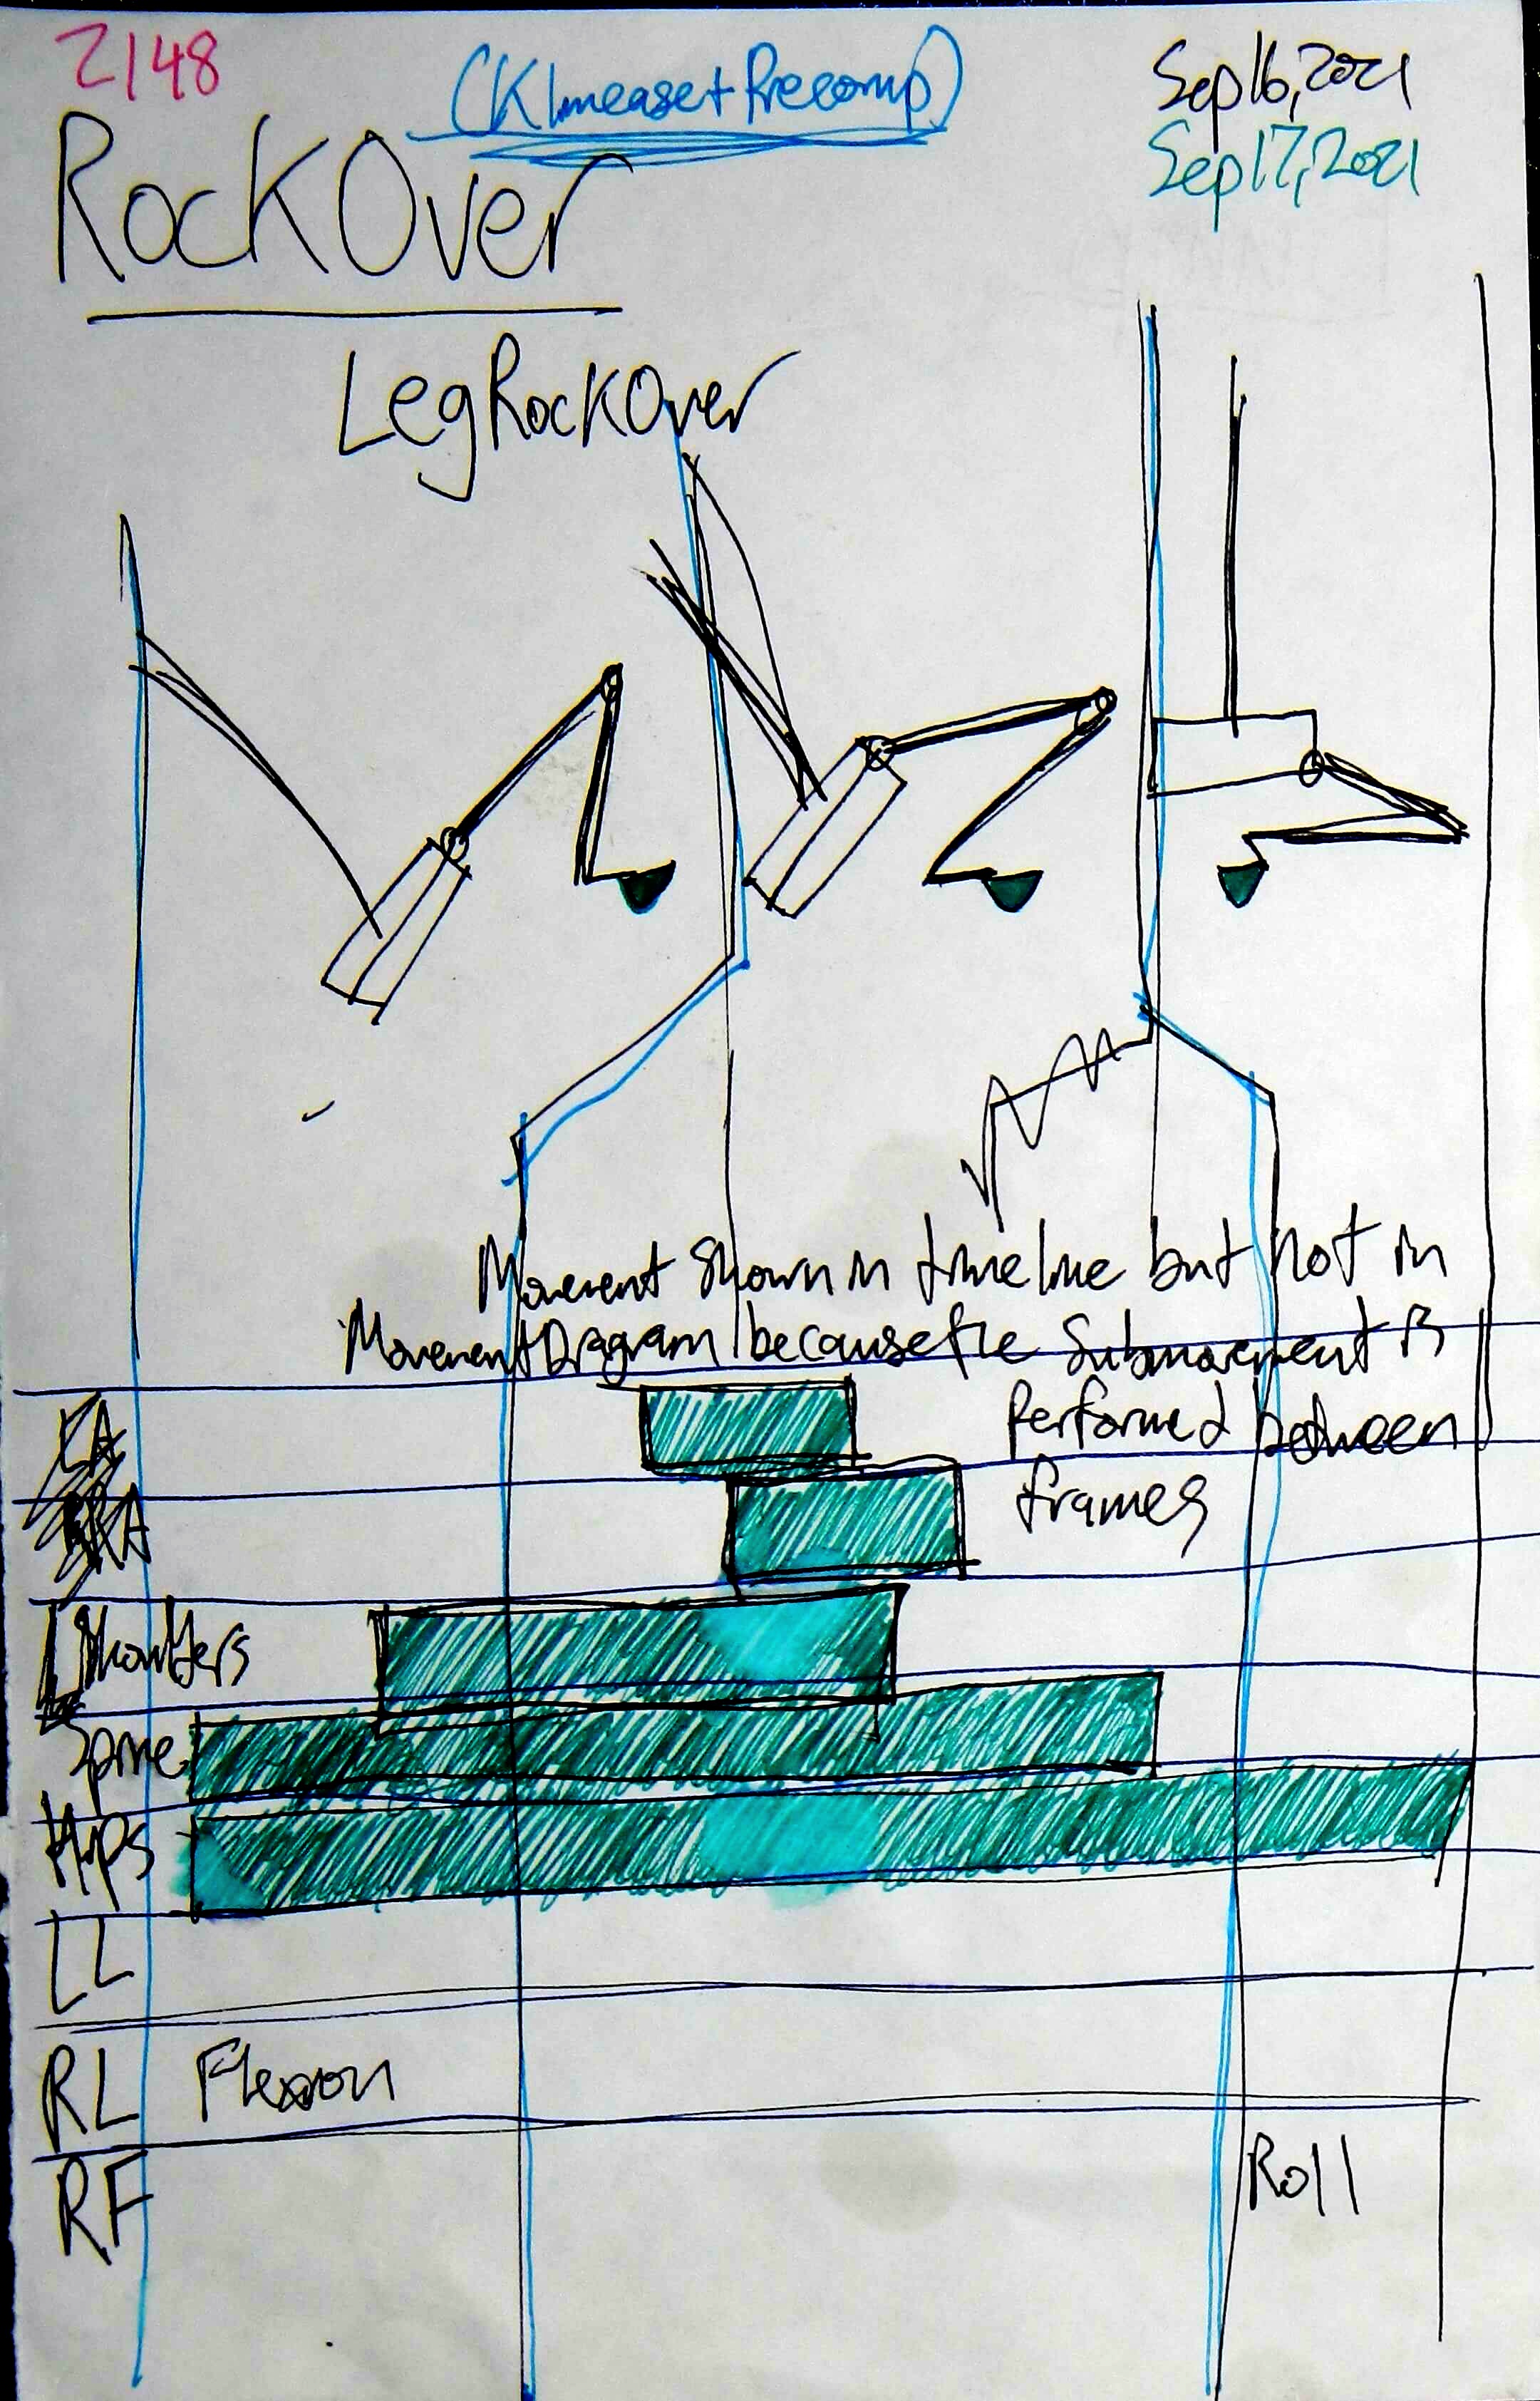 2148
(Klmease+Precomp)
Sep16,2021
Sep17,2021
RockOver
LegRockOver
Movement Shown in timeline but not in
MovementDiagram because the Submovement is
Performed between
frames
LA
RA
Shoulders
Spine
Hips
LL
RL Flexion
RF Roll